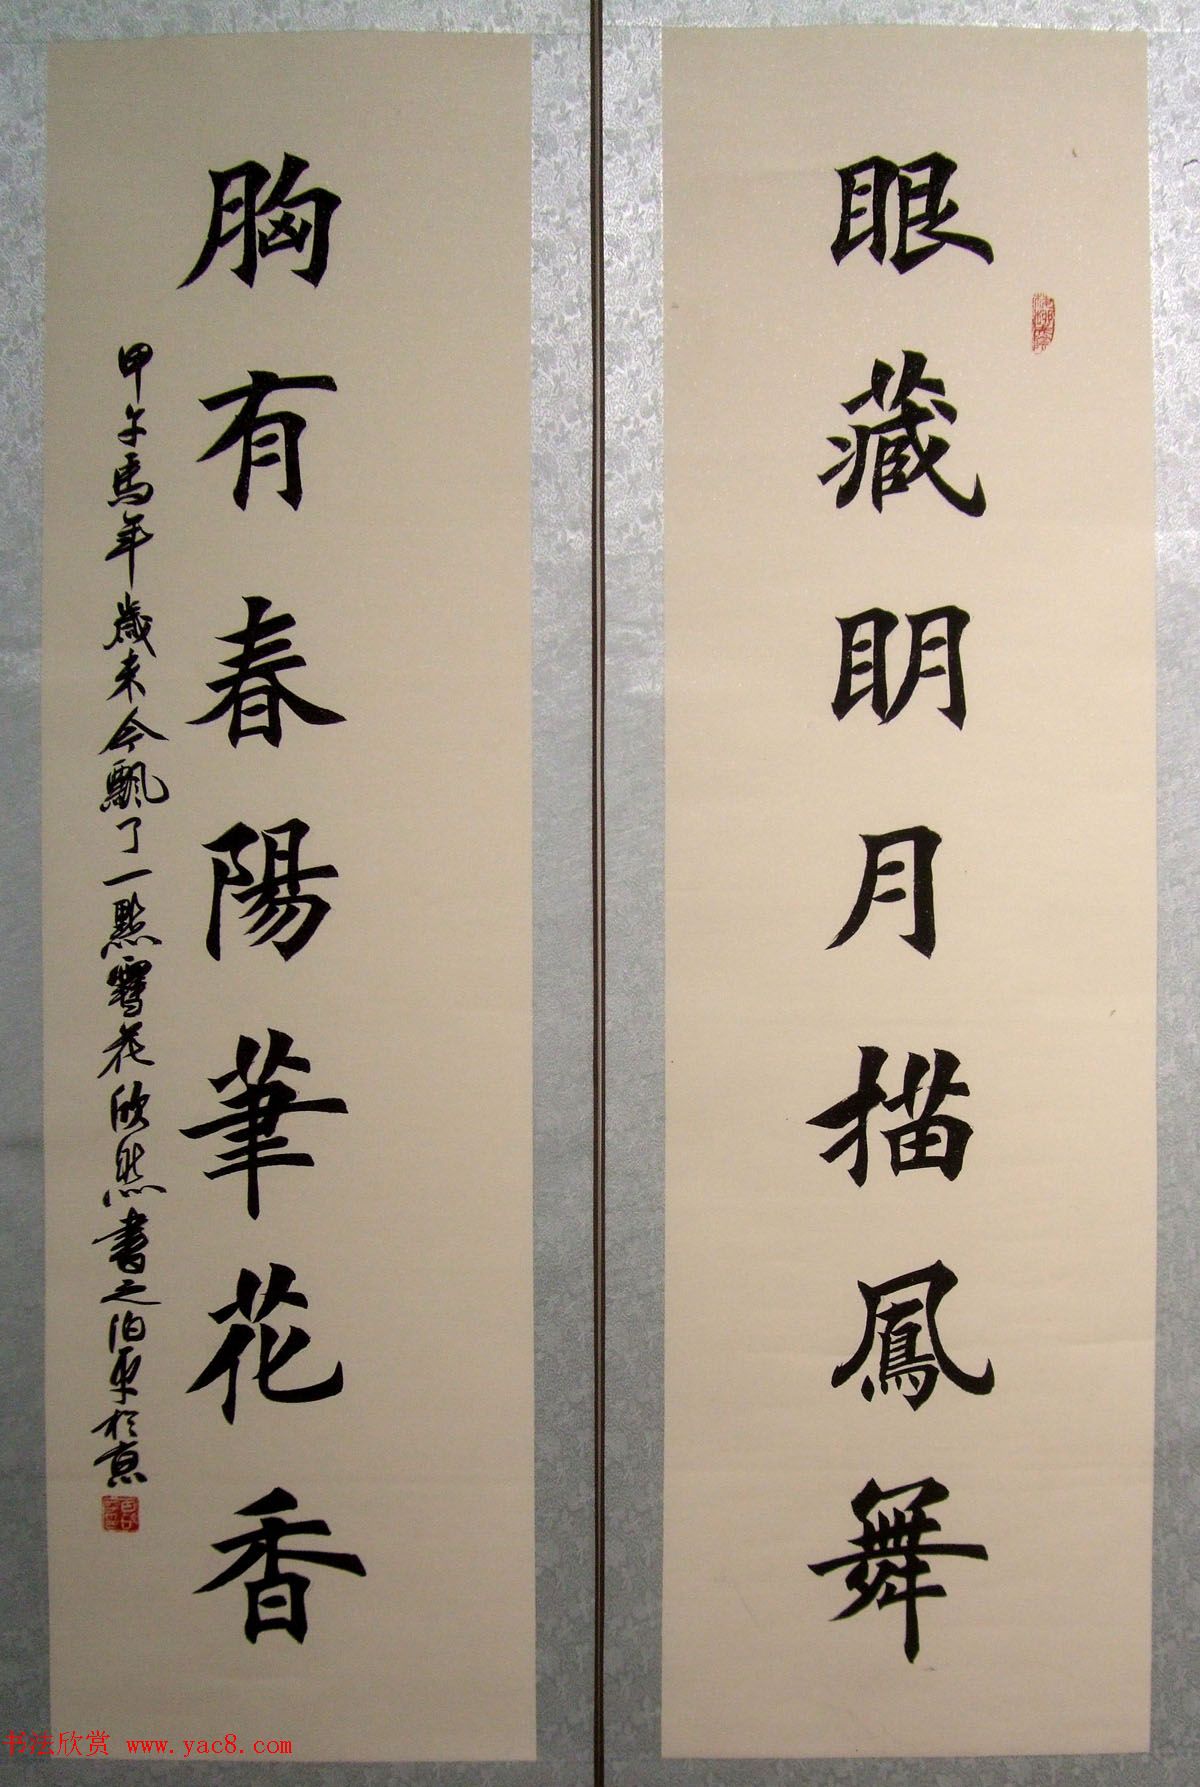 眼藏明月描鳳舞
胸有春陽筆花香
甲午馬年歲末今飄了一點雪花欣然書之伯平於京
书法欣赏 www.yac8.com